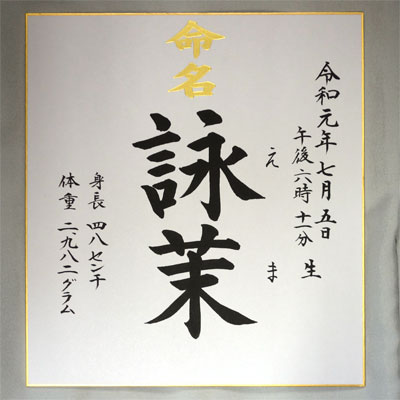 命名
令和元年七月五日
午後六時十一分 生
詠茉
えま
身長 四八センチ
体重 二、九八二グラム